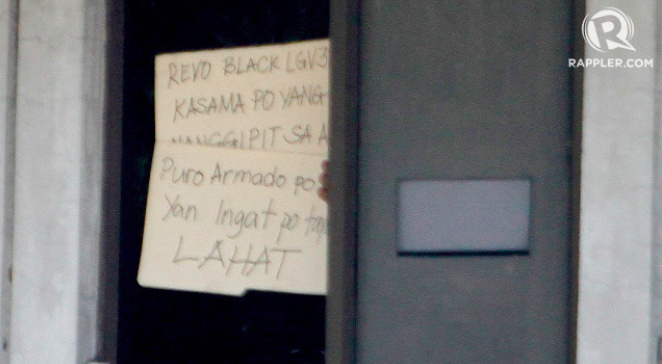 REVO BLACK LGV3
KASAMA PO YANG
NANGGIPIT SA A
Puro Armado po
Yan Ingat po tayo
LAHAT
R
RAPPLER.COM